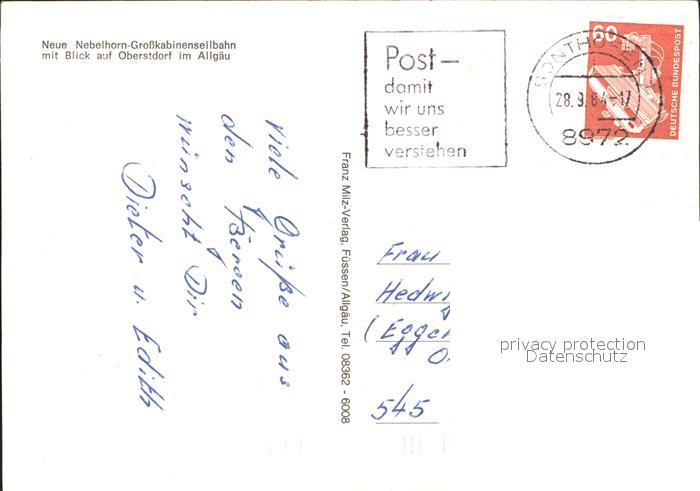 Neue Nebelhorn-Großkabinenseilbahn
mit Blick auf Oberstdorf im Allgäu
Viele Grüße aus
den Bergen
wünscht Dir
Dieter u. Edith
Franz Milz-Verlag, Füssen/Allgäu, Tel. 08362 - 6008
Post–
damit
wir uns
besser
verstehen
SONTHOFEN
28.9.84-17
8972
60
DEUTSCHE BUNDESPOST
Frau
Hedwi
(Egge
O.
545
privacy protection
Datenschutz